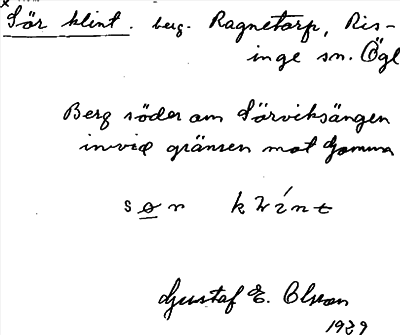 Sör klint. berg. Ragnetorp, Ris-
inge sn. Ögl
Berg söder om Sörviksängen
invid gränsen mot Gomma
s ø r k l i n t
Gustaf E. Olsson
1929